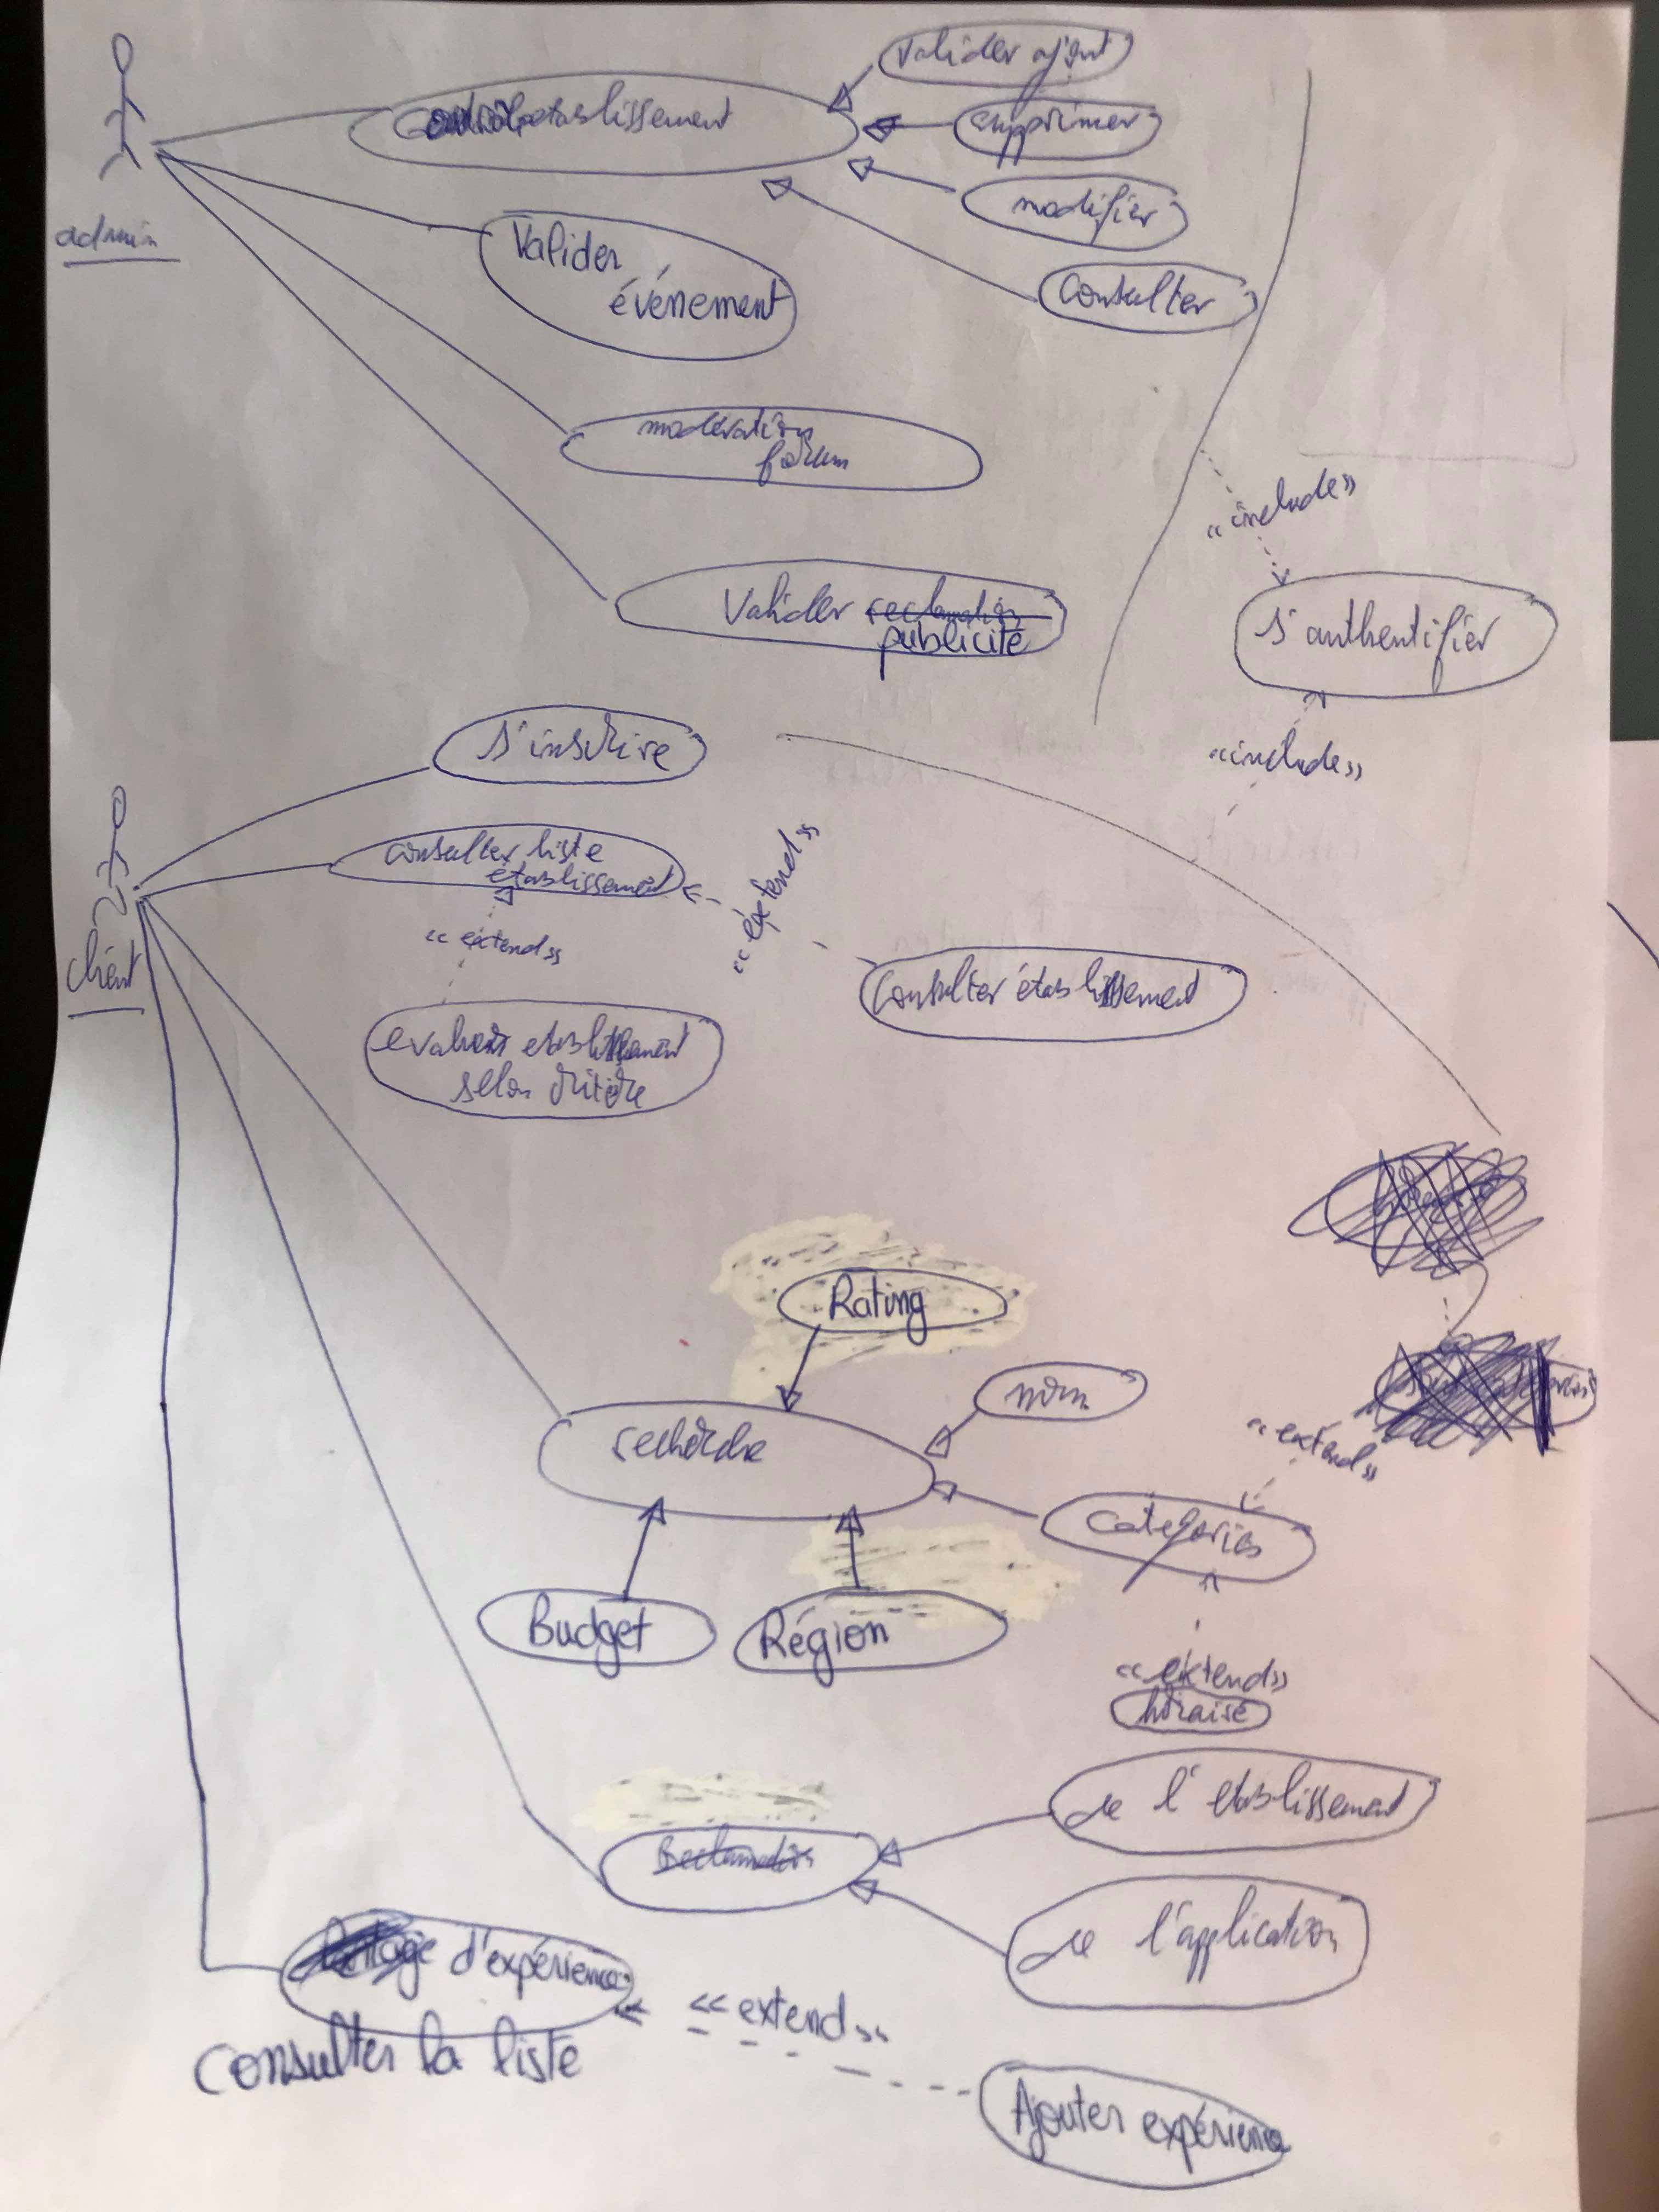 valider ajout
établissement
supprimer
modifier
admin
Valider
événement
Consulter
modération
forum
«include»
Valider reclamation
publicité
s'authentifier
s'inscrire
«include»
consulter liste
établissement
«extend»
«extend»
client
Consulter établissement
evaluer etablissement
selon critère
Rating
nom
recherche
«extend»
Categories
Budget
Région
«extend»
horaire
de l'etablissement
Reclamation
de l'application
Partage d'expérience
«extend»
consulter la liste
Ajouter expérience